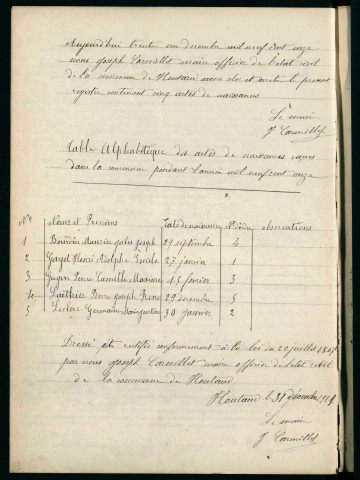 Aujourd'hui trente un decembre mil neuf cent onze
nous Joseph Carmillet maire officier de l'etat civil
de la commune de Houtaud avons clos et arreté le present
registre contenant cinq actes de naissances
Le maire
J Carmillet
Table Alphabétique des actes de naissances reçus
dans la commune pendant l'année mil neuf cent onze
Nos Noms et Prenoms Date de naissance No d'ordre observations
1 Bourdin Maurice jules joseph 29 septembre 4
2 Henri Adolphe 27 janvier 1
3 Pierre Camille 4 fevrier 3
4 Pierre Joseph 29 decembre 5
5 Leclerc Germaine 30 janvier 2
Dressé et certifié conformement à la loi du 20 juillet 1807
par nous Joseph Carmillet maire officier de l'etat civil
de la commune de Houtaud
Houtaud le 31 décembre 1911
Le maire
J Carmillet